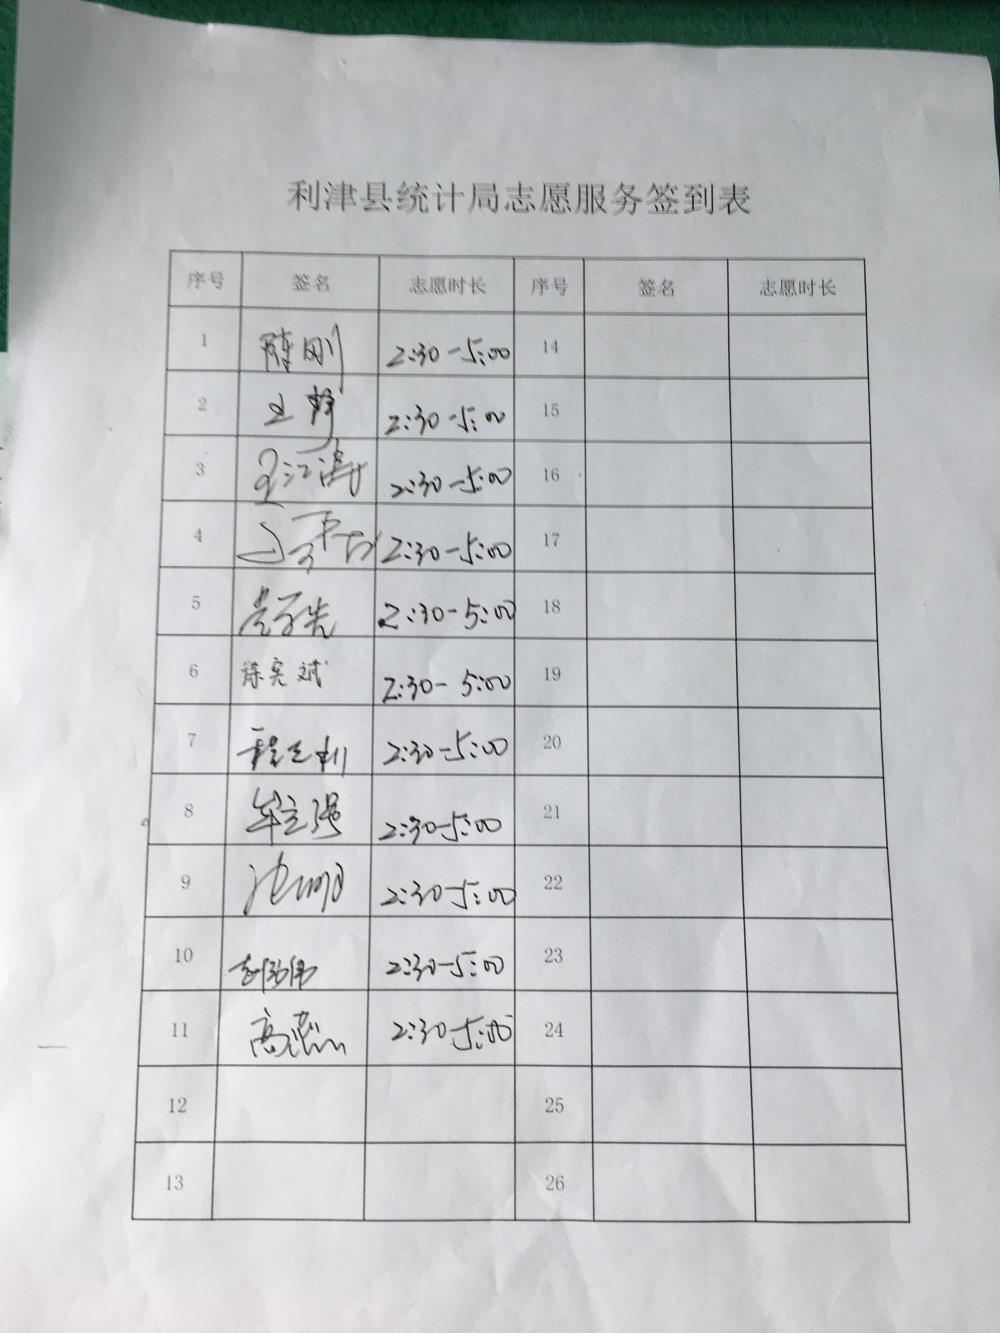 利津县统计局志愿服务签到表
序号 签名 志愿时长 序号 签名 志愿时长
1 陈刚 2:30-5:00 14
2 王静 2:30-5:00 15
3 王江涛 2:30-5:00 16
4 2:30-5:00 17
5 2:30-5:00 18
6 陈宪斌 2:30-5:00 19
7 2:30-5:00 20
8 牟立强 2:30-5:00 21
9 2:30-5:00 22
10 2:30-5:00 23
11 高 2:30-5:00 24
12 25
13 26